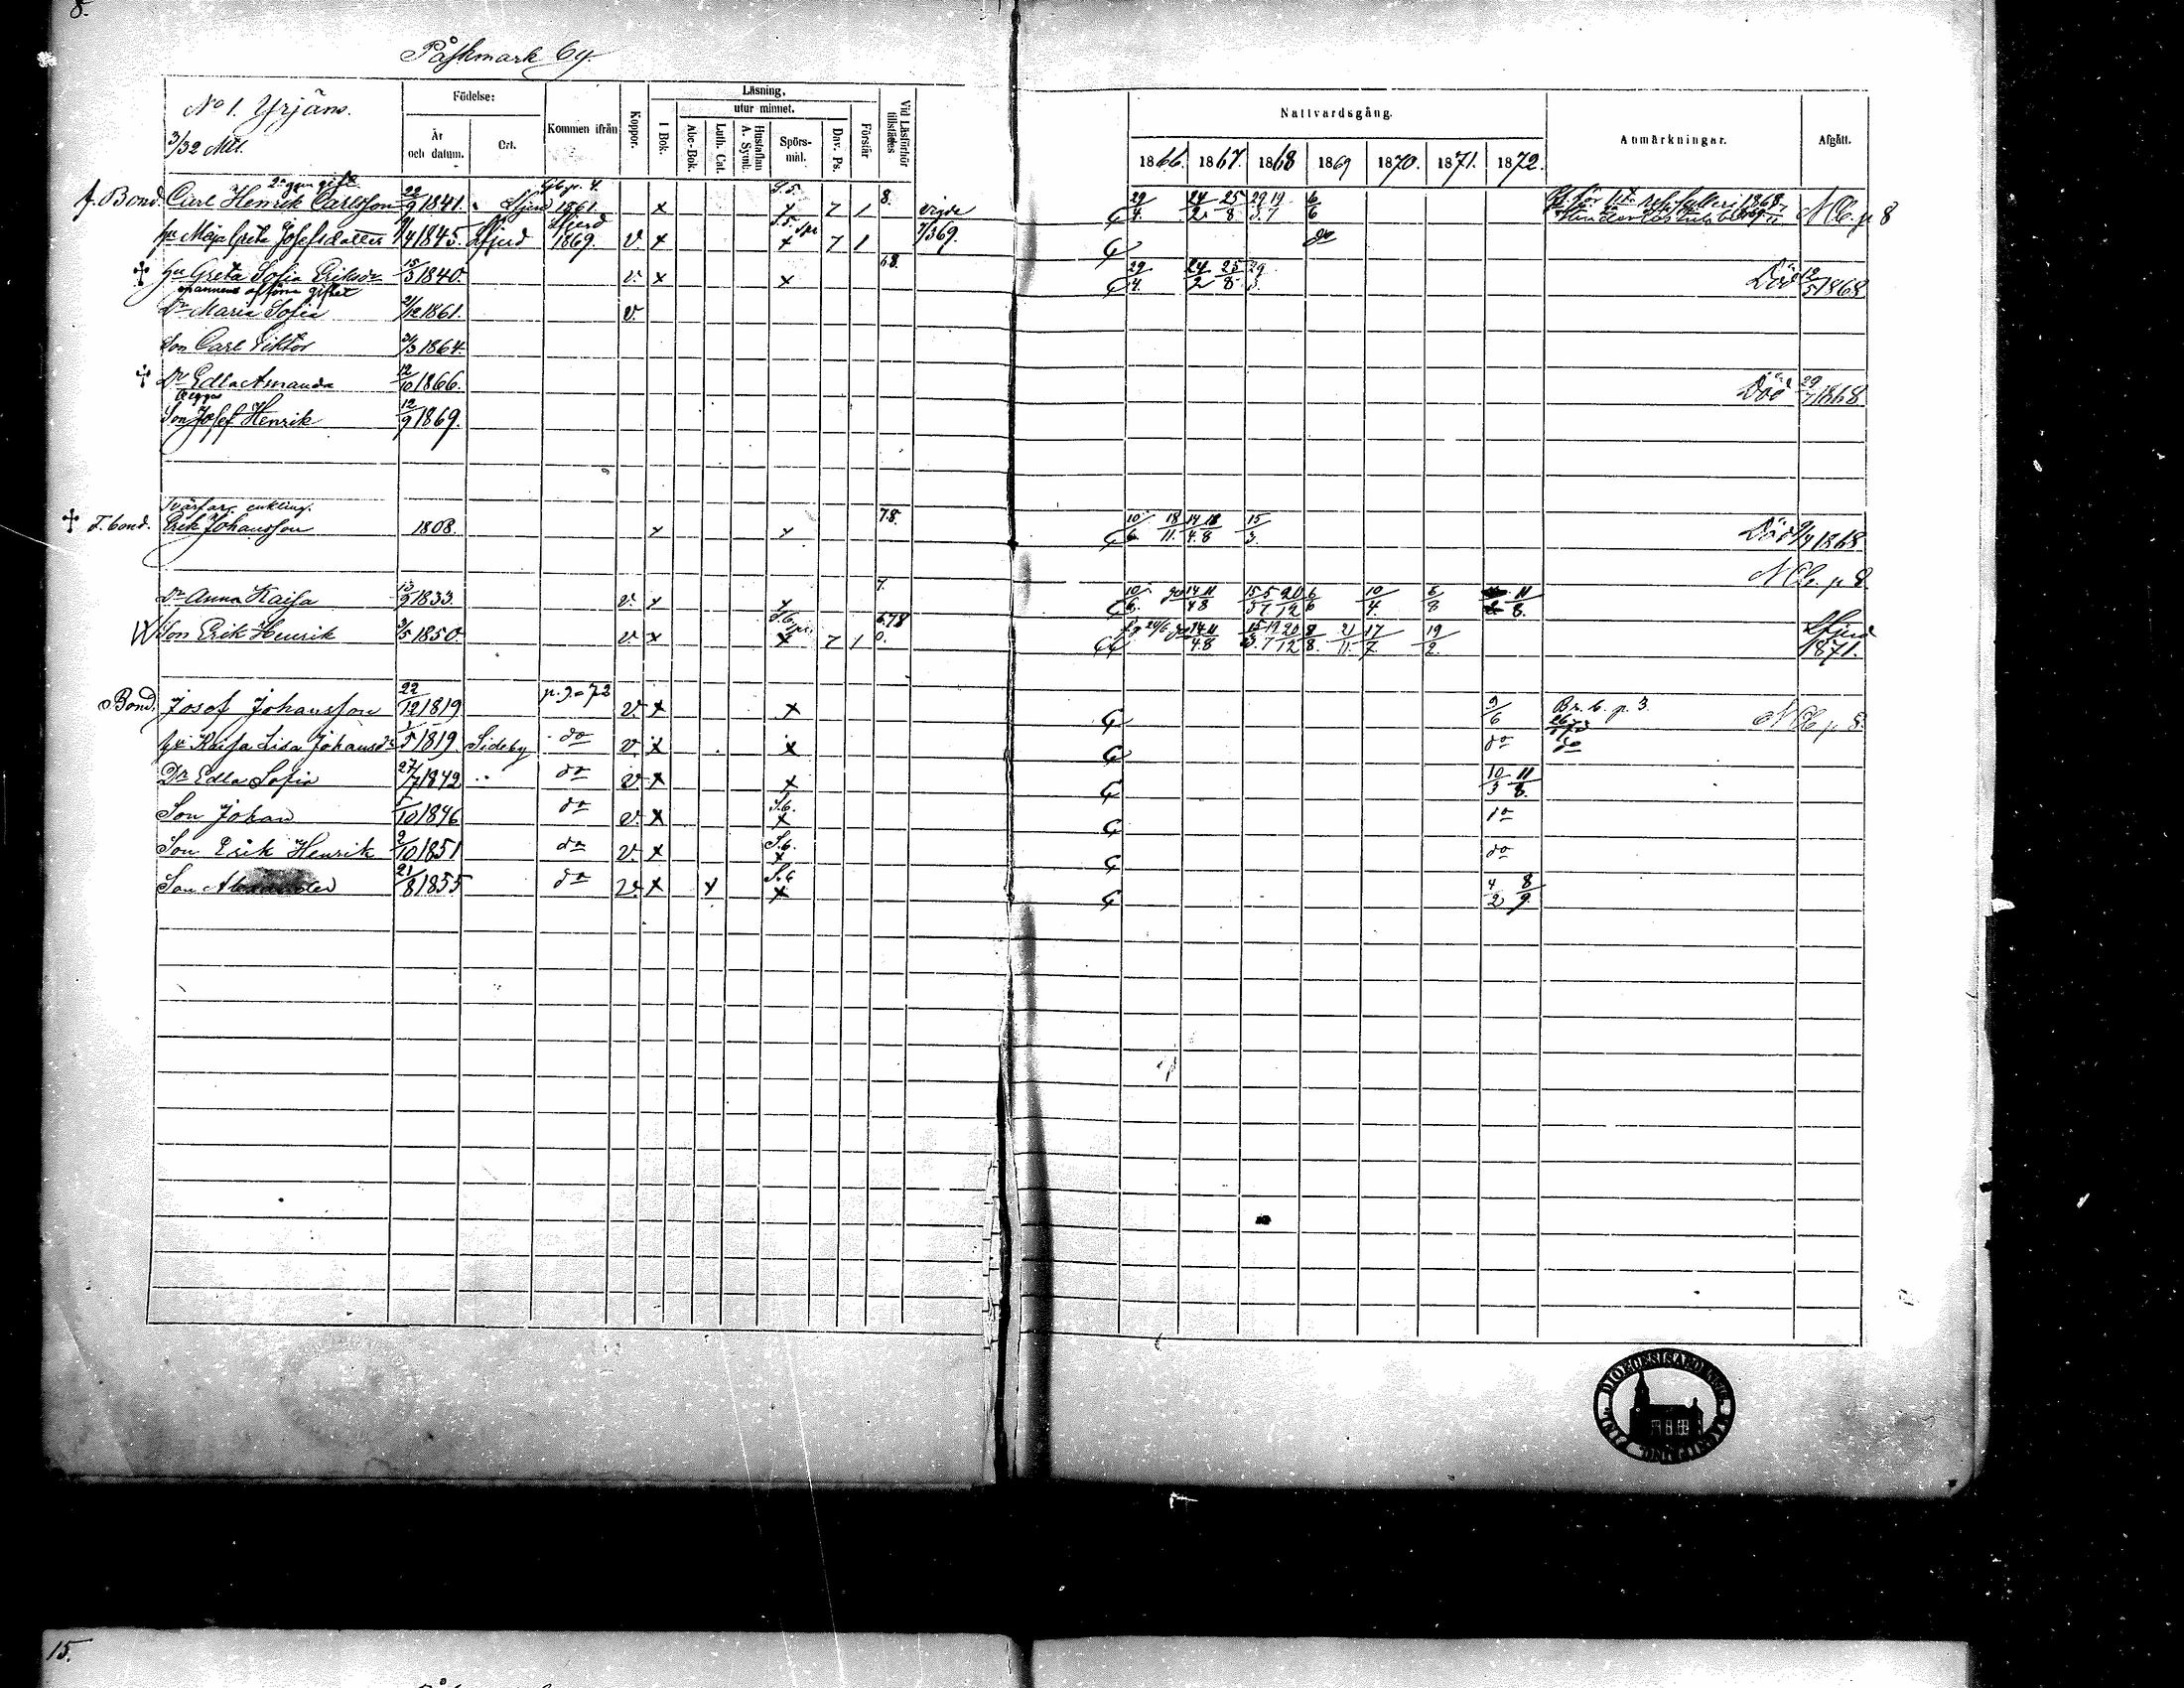 8.
Påskmark by.
No 1. Yrjäns.
3/32 Mtl.
Födelse:
År och datum.
Ort.
Kommen ifrån
Koppor.
Läsning,
I Bok.
utur minnet.
Abc-Bok.
Luth. Cat.
Hustaflan A. Symb.
Spörs-mål.
Dav. Ps.
Förstår
Vid Läsförhör tillstädes
Nattvardsgång.
1866. 1867. 1868 1869 1870. 1871. 1872.
Anmärkningar.
Afgått.
2a ggn gift
f. Bond. Carl Henrik Carlsson 22/9 1841. 1861. x S.5. x 7 1 8. vigde 29/4. 24/2 25/8 29/3 19/7 6/6 N Cb. p 8
hu Maja Greta Josefsdotter 1/4 1845. Lfjerd Lfjerd 1869. v x S.5. x 7 1 7/3 69. do
hu Greta Sofia Eriksdr 15/3 1840. v. x x 68. 29/4. 24/2 25/8 29/3. Död 12/5 1868
mannens af förra giftet
Dr Maria Sofia 2/12 1861. v.
Son Carl Viktor 2/3 1864.
Dr Edla Amanda 12/10 1866. Död 29/7 1868
Son Josef Henrik 12/9 1869.
Svärfar, enkling.
F. bond. Erik Johansson 1808. x x 78. 10/6 18/11. 14/4 18/8 15/3. Död 9/4 1868
N Cb. p 8.
Dr Anna Kaisa 13/9 1833. v. x x 7. 10/6. 14/4 11/8 15/3 5/7 20/12 6/6 10/4. 6/8 11/8.
Son Erik Henrik 3/5 1850. v x S.6. x 7 1 678 0. 24/6 14/4 11/8 15/3 19/7 20/12 8/8. 21/11. 17/7 19/2. Lfjerd 1871.
Bond. Josef Johansson 22/12 1819 p. 9 = 72 v. x x 9/6 Br. b. p. 3. N Cb p 8.
hu Kaisa Lisa Johansdr 1/5 1819. Sideby do v. x x do do
Dr Edla Sofia 27/7 1842 " do v. x x 10/3 11/8.
Son Johan 1/10 1846 do v. x S.6. x do
Son Erik Henrik 2/10 1851 do v. x S.6. x do
Son Alexander 21/8 1855 do v. x x S.6 x 4/2 8/9.
15.